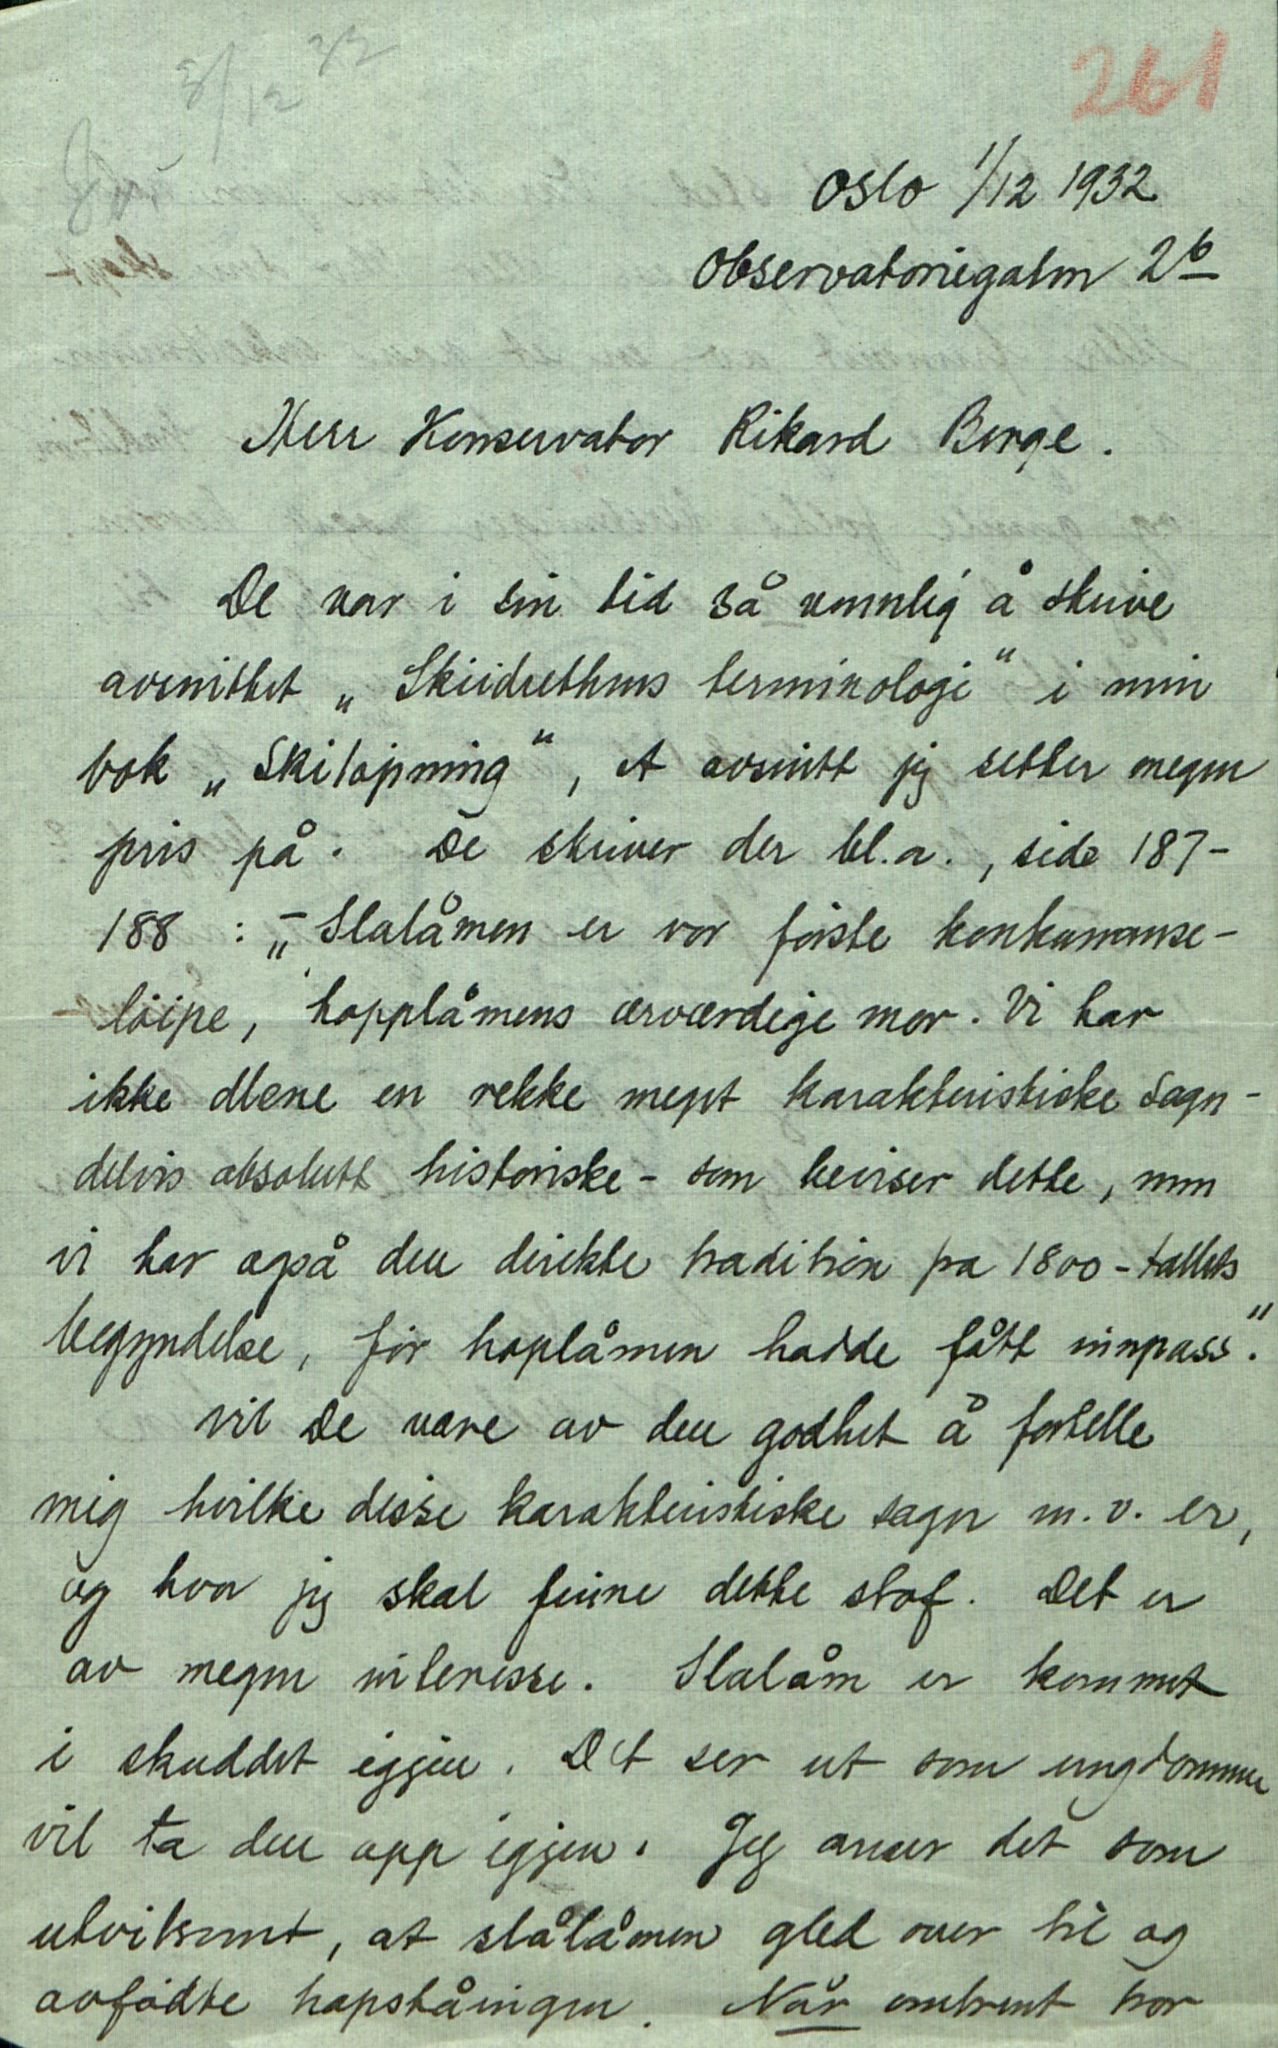 8/12 32
261
Oslo 1/12 1932
Observatoriegaten 2b
Herr Konservator Rikard Berge.
De var i sin tid så vennlig å skrive
avsnittet „Skiidrettens terminologi" i min
bok „Skiløpning", et avsnitt jeg setter megen
pris på. De skriver der bl.a., side 187-
188 : „- Slalåmen er vor første konkurranse-
løipe, hopplåmens ærværdige mor. Vi har
ikke alene en rekke meget karakteristiske sagn -
delvis absolutt historiske - som beviser dette, men
vi har også den direkte tradition fra 1800-tallets
begyndelse, før hoplåmen hadde fått innpass".
Vil De være av den godhet å fortelle
mig hvilke disse karakteristiske sagn m.v. er,
og hvor jeg skal finne dette stof. Det er
av megen interesse. Slalåm er kommet
i skuddet igjen. Det ser ut som ungdommen
vil ta den opp igjen. Jeg anser det som
utvilsomt, at slålåmen gled over til og
avfødte hopståingen. Når omtrent tror